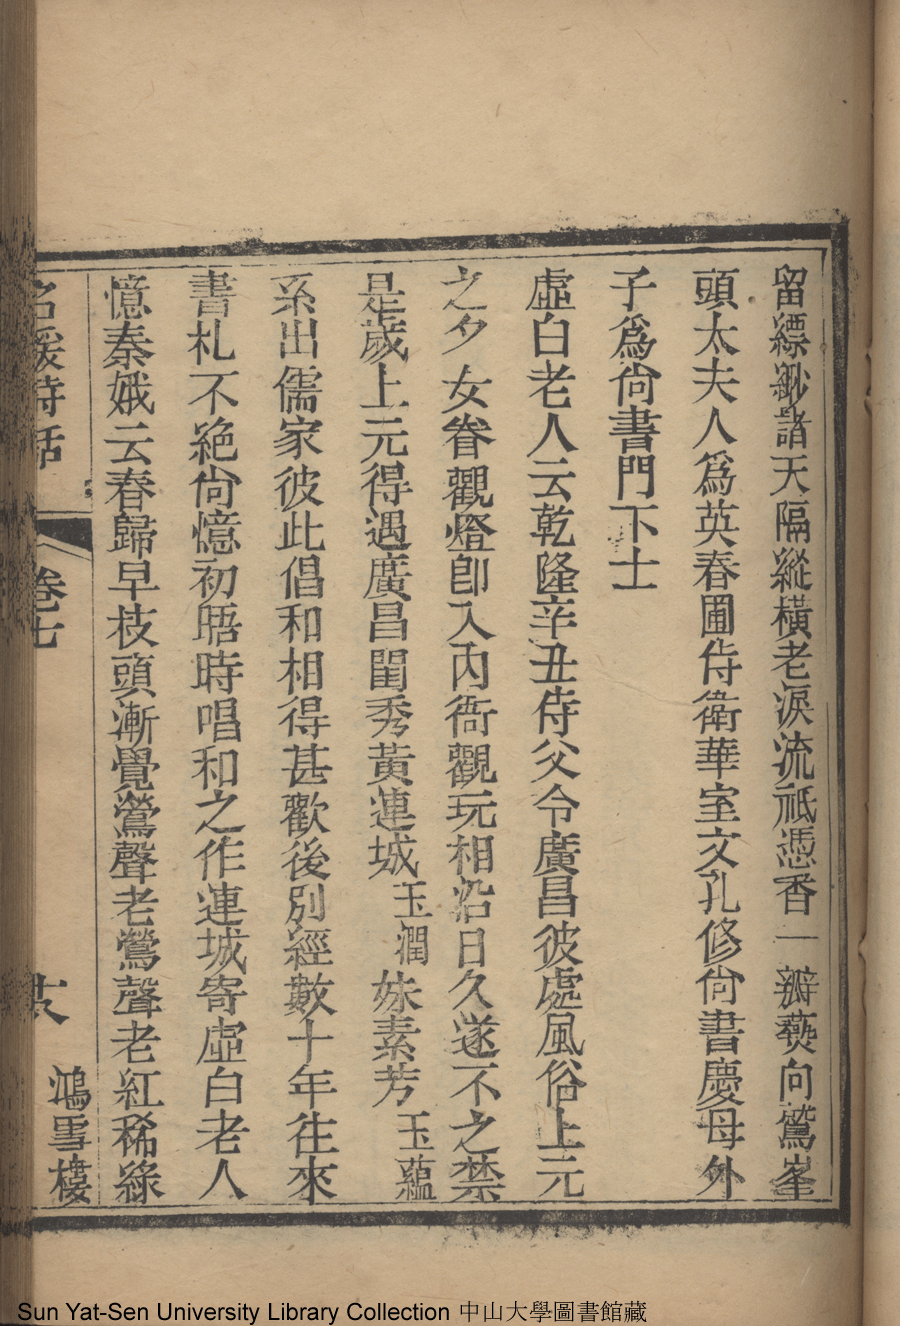 留縹緲諸天隔縱橫老淚流祗憑香一瓣爇向鷲峯
頭太夫人為英春圃侍衛華室文孔修尙書慶母外
子為尙書門下士
虛白老人云乾隆辛丑侍父令廣昌彼處風俗上元
之夕女眷觀燈卽入內衙觀玩相沿日久遂不之禁
是歲上元得遇廣昌閨秀黃連城玉潤妹素芳玉蘊
系出儒家彼此倡和相得甚歡後別經數十年往來
書札不絕尙憶初晤時唱和之作連城寄虛白老人
憶秦娥云春歸早枝頭漸覺鶯聲老鶯聲老紅稀綠
名媛詩話
卷七
鴻雪樓
Sun Yat-Sen University Library Collection 中山大學圖書館藏